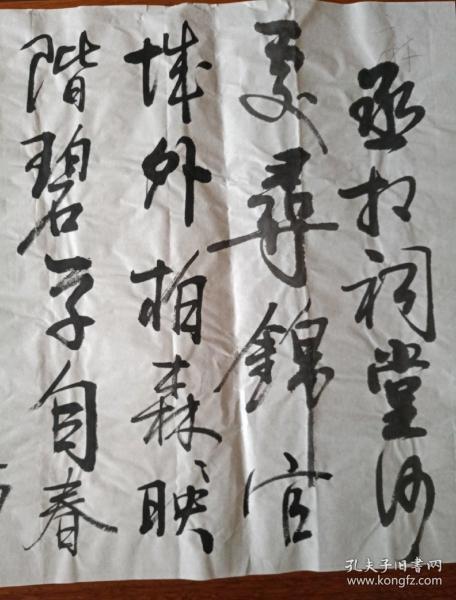 丞相祠堂何
处尋錦官
城外柏森〻映
階碧草自春
孔夫子旧书网
www.kongfz.com